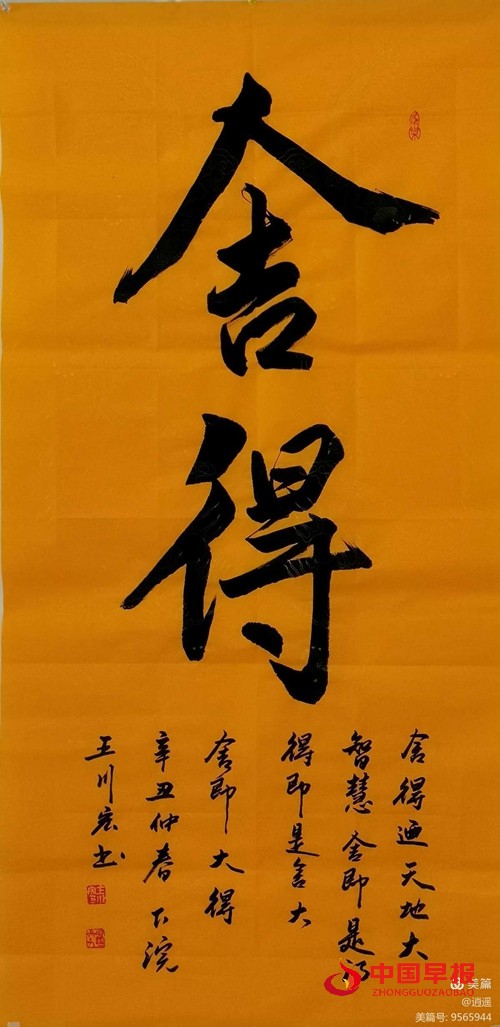 舍
得
舍得迺天地大
智慧舍即是得
得即是舍大
舍即大得
辛丑仲春下浣
王川宏书
中国早报
ZHONGGUOZAOBAO
美篇
@逍遥
美篇号: 9565944